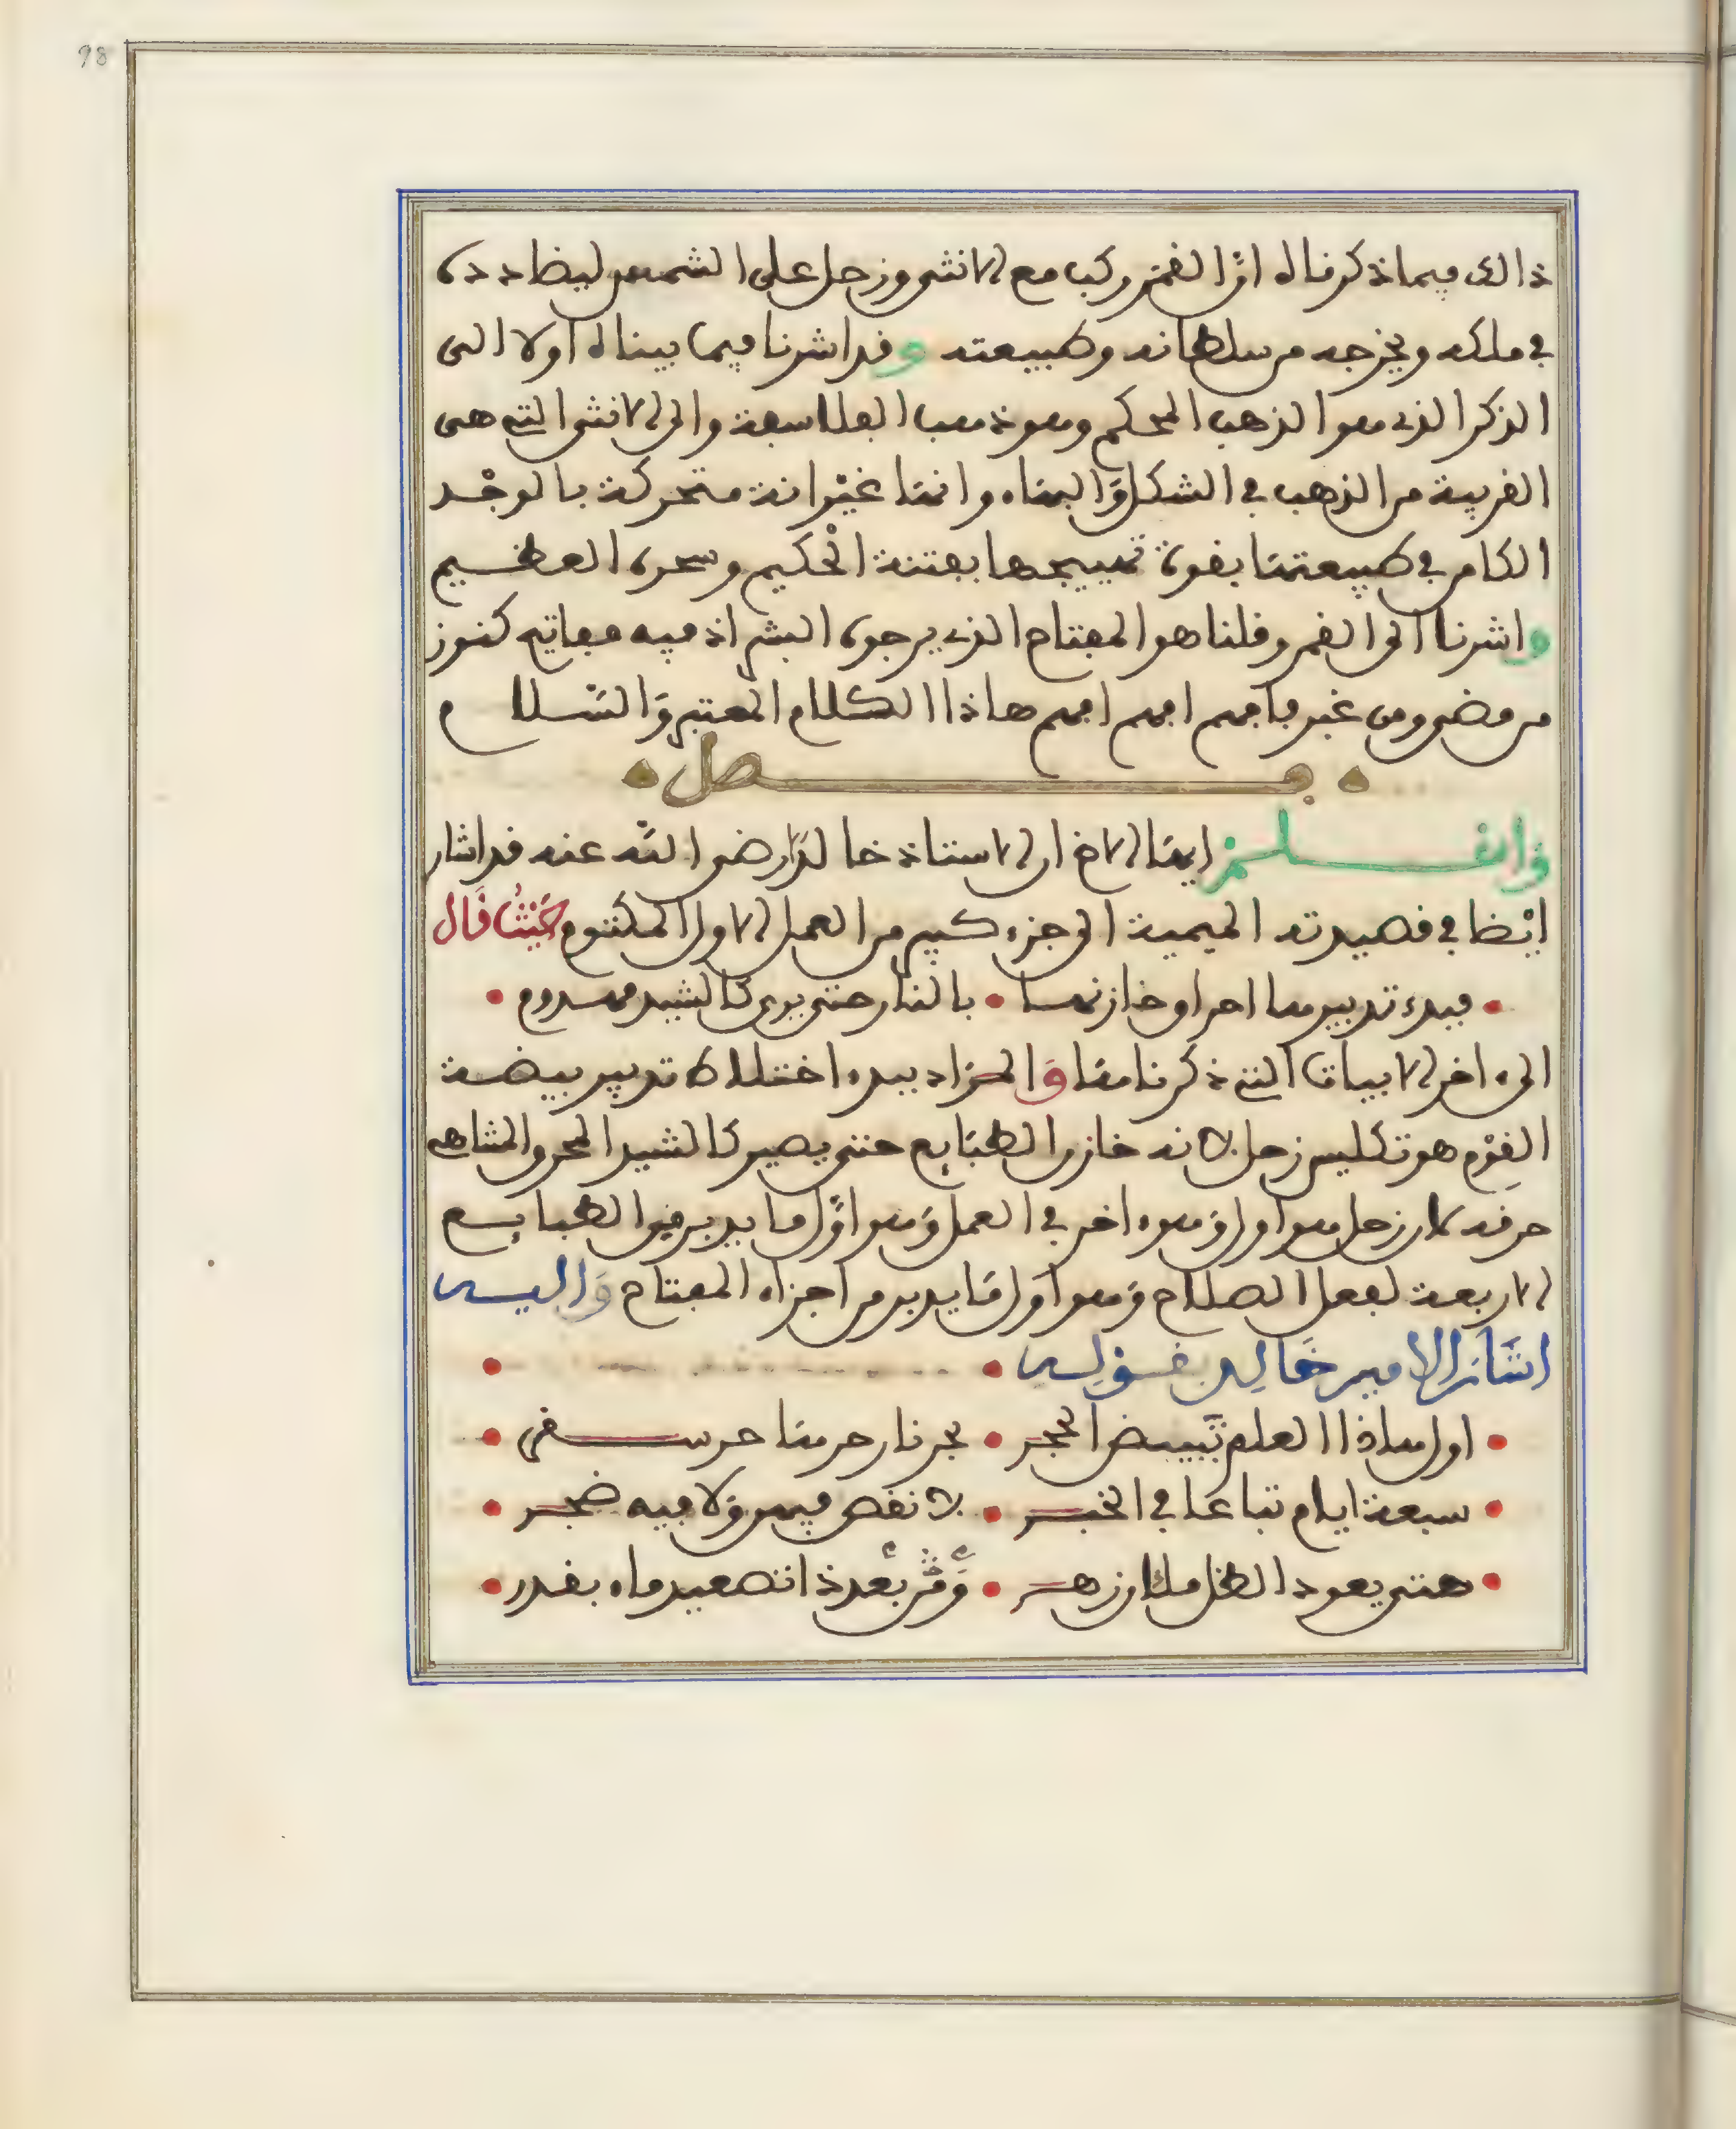 98
ذالك فيما ذكرناه ان القمر ركب مع الانثى وزحل على الشمس ليضادده
في ملكه ويخرجه من سلطانه وطبيعته وقد اشرنا فيما بيناه اولا الى
الذكر الذي هو الذهب المحكم وهو ذهب الفلاسفة والى الانثى التي هي
القريبة من الذهب في الشكل والبهاء وانها غير انه متحركة بالوجد
الكامن في طبيعتها بقوة تهييجها بفتنة الحكيم وسحره العظيم
واشرنا الى القمر وقلنا هو المفتاح الذي يرجوه البشر اذ فيه مفاتيح كنوز
من مضى ومن غبر فافهم افهم افهم هاذا الكلام المعتبر والسلام
فصل
واعلم ايها الاخ ان الاستاذ خالد رضي الله عنه قد اشار
ايضا في قصيدته الميمية الى جزء كبير من العمل الاول المكتوم حيث قال
• فبدء تدبيرها احراق خازنها • بالنار حتى يرى كالشيد مهدوم •
الىء اخر الابيات التي ذكرناها والمراد ببدء اختلاط تدبير بيضة
القوم هو تكليس زحل لانه خازن الطبايع حتى يصير كالشيد المحروق المتناهي
حرقه لان زحل هو اول وهوء اخر في العمل وهو اول ما يدبر من الطبايع
الاربعة لفعل الصلاح وهو اول ما يدبر من اجزاء المفتاح واليه
اشار الامير خالد بقوله •
• اول هاذا العلم تبييض الحجر • بحر نار حرها حر سقر •
• سبعة ايام تباعا في الخبر • لا نقص فيهن ولا فيه ضجر •
• حتى يعود الطل ملان زهر • ومن بعد ذا تصعيد ماء بقدر •